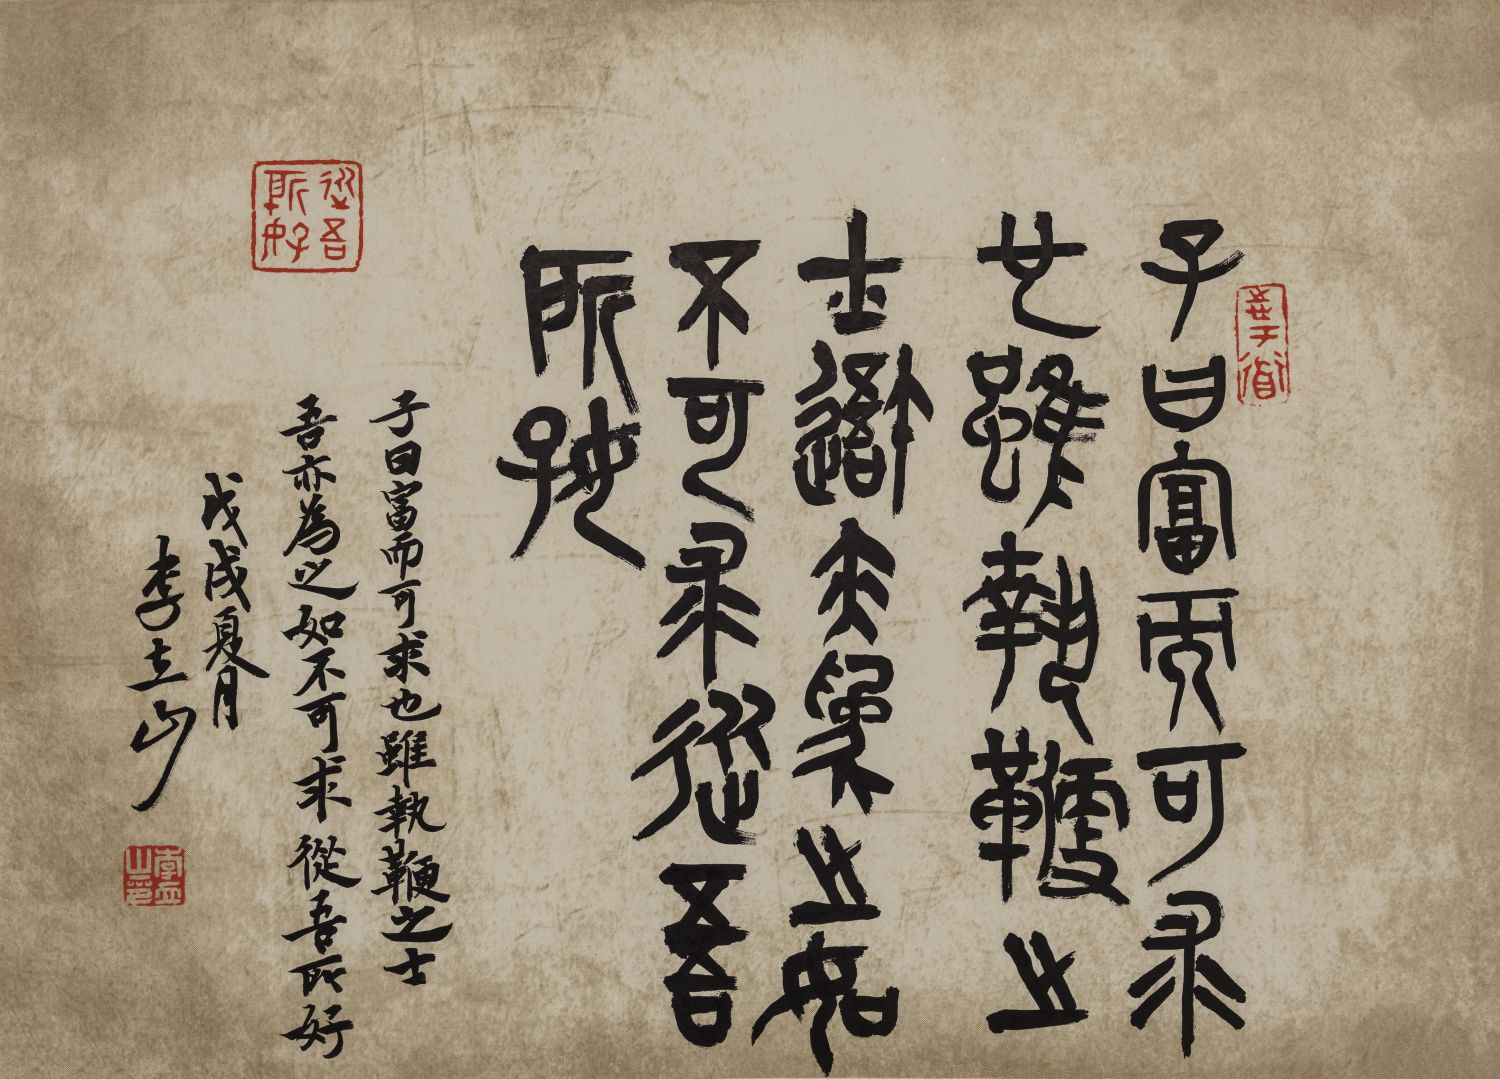 子曰富而可求
也雖執鞭之
士吾亦為之如
不可求從吾
所好
子曰富而可求也雖執鞭之士
吾亦為之如不可求從吾所好
戊戌夏月
李立山
從吾所好
李立山印